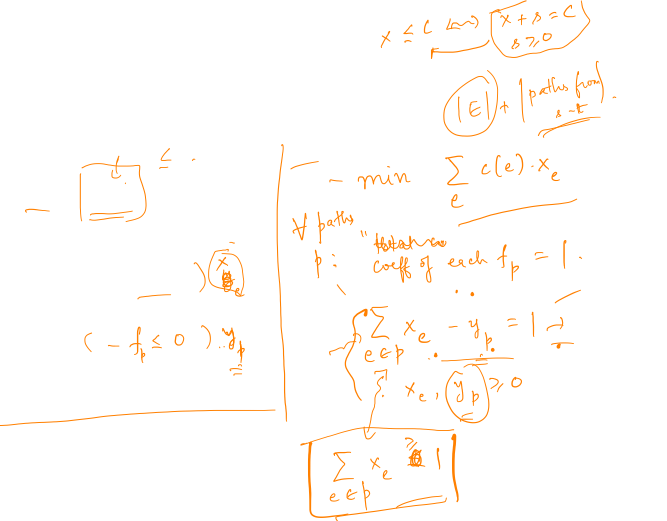 x ≤ c ⟺ x + s = c
s ≥ 0
|E| + |paths from s-t|
≤ .
- min ∑_e c(e) · x_e
∀ paths p : " coeff of each f_p = 1 .
) x_e
(- f_p ≤ 0) · y_p
∑_{e∈p} x_e - y_p = 1
x_e , y_p ≥ 0
∑_{e∈p} x_e ≥ 1